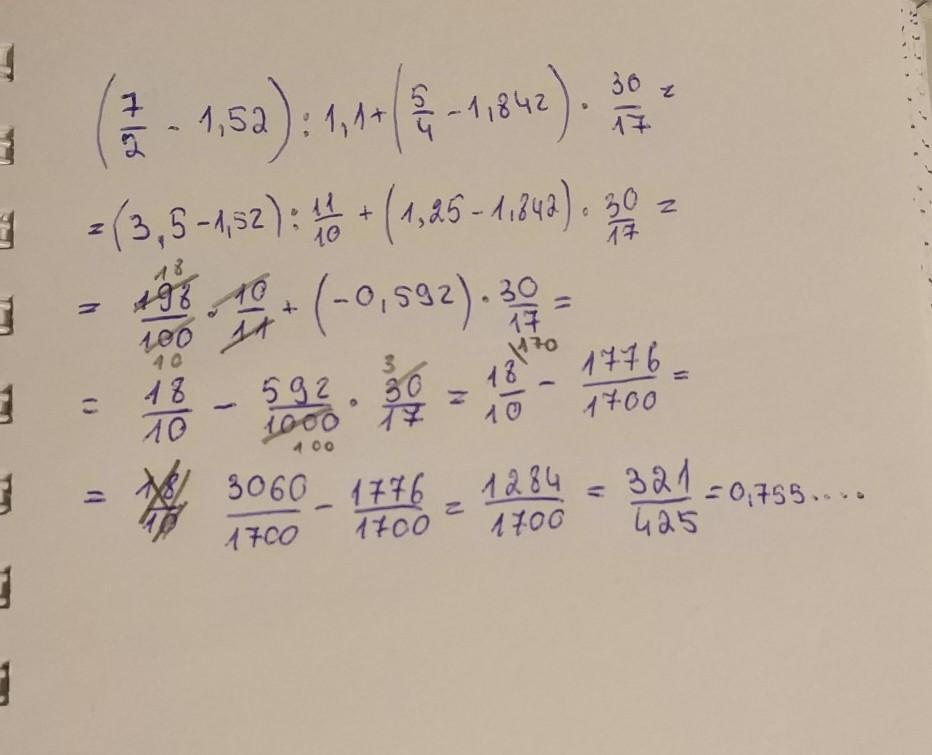 (7/2 - 1,52) : 1,1 + (5/4 - 1,842) · 30/17 =
= (3,5 - 1,52) : 11/10 + (1,25 - 1,842) · 30/17 =
18
= 198/100 · 10/11 + (-0,592) · 30/17 =
10 3 \170
= 18/10 - 592/1000 · 30/17 = 18/10 - 1776/1700 =
100
= 18/10 3060/1700 - 1776/1700 = 1284/1700 = 321/425 = 0,755....